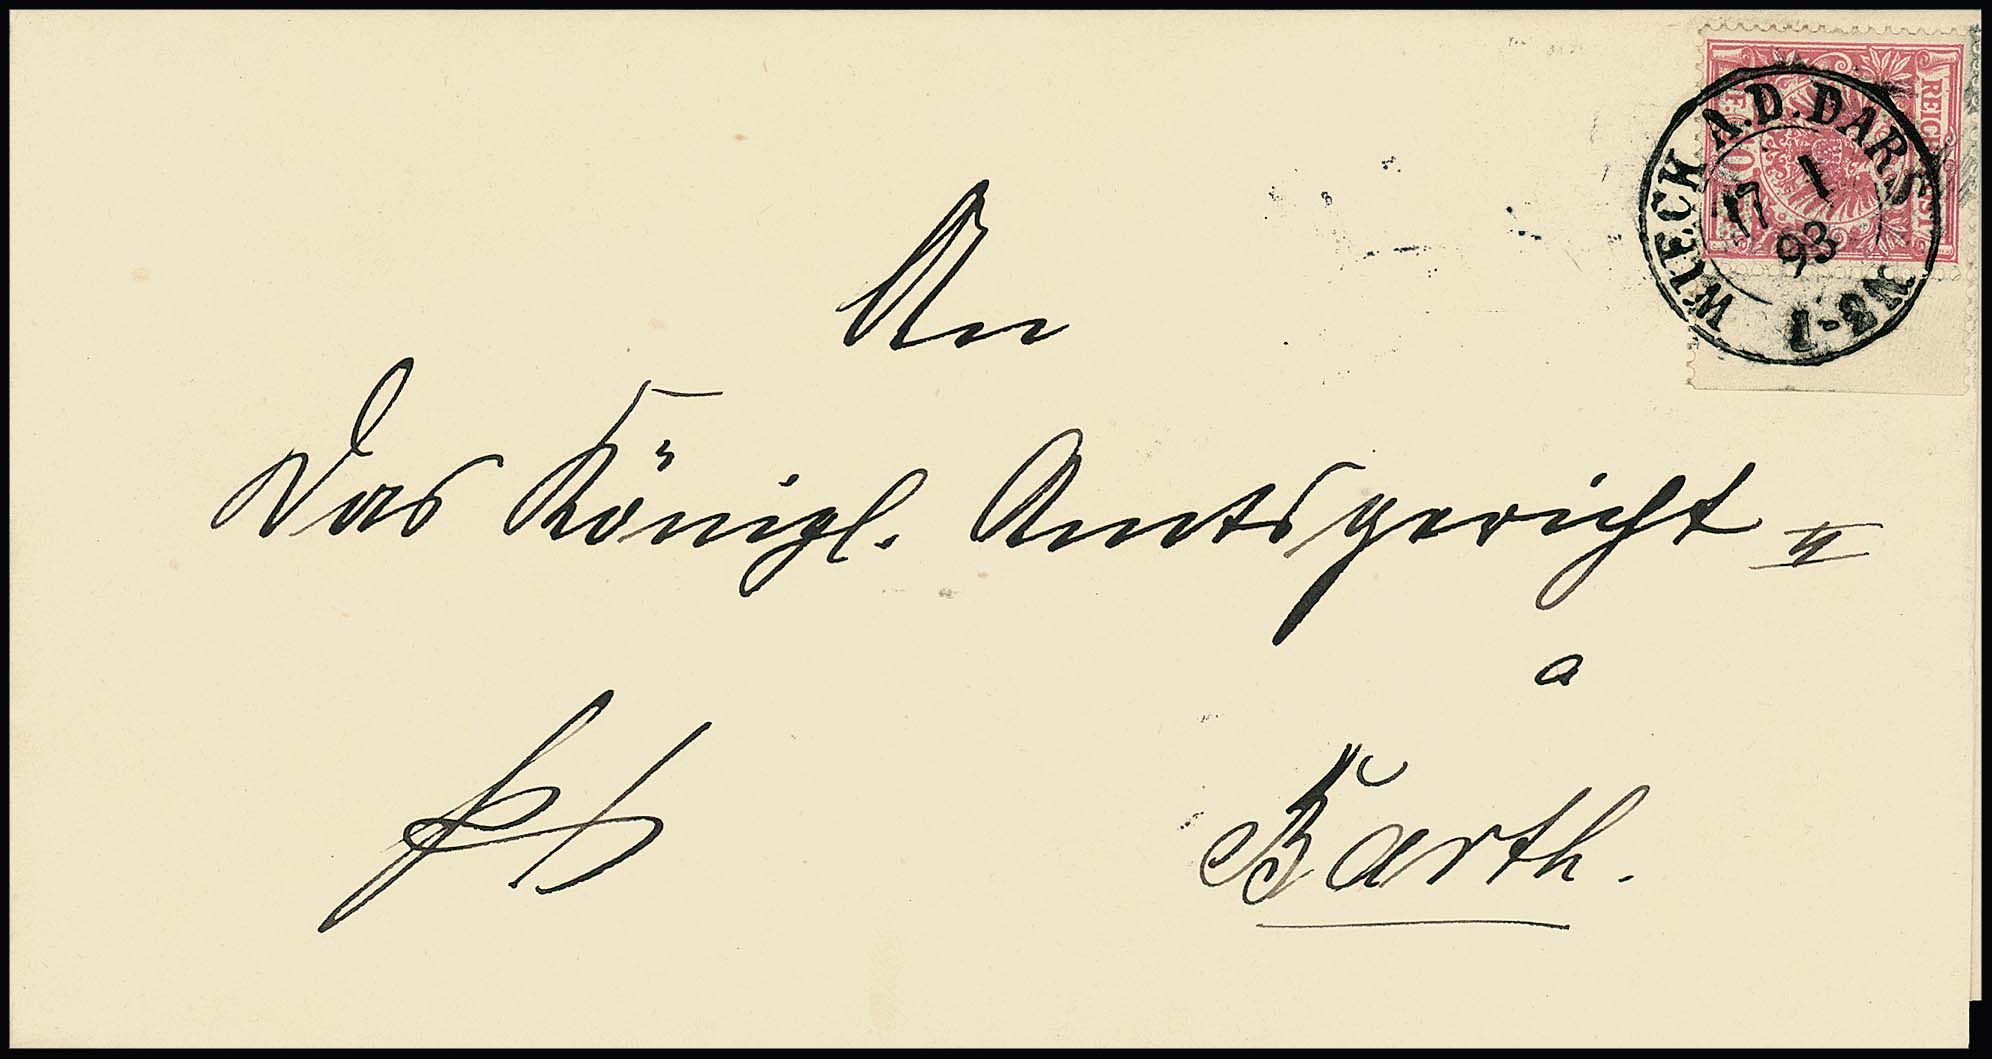 WIECK A.D. DARS
17 1
93
1-2N
REICHSPOST
An
Das Königl. Amtsgericht II
a
Barth.